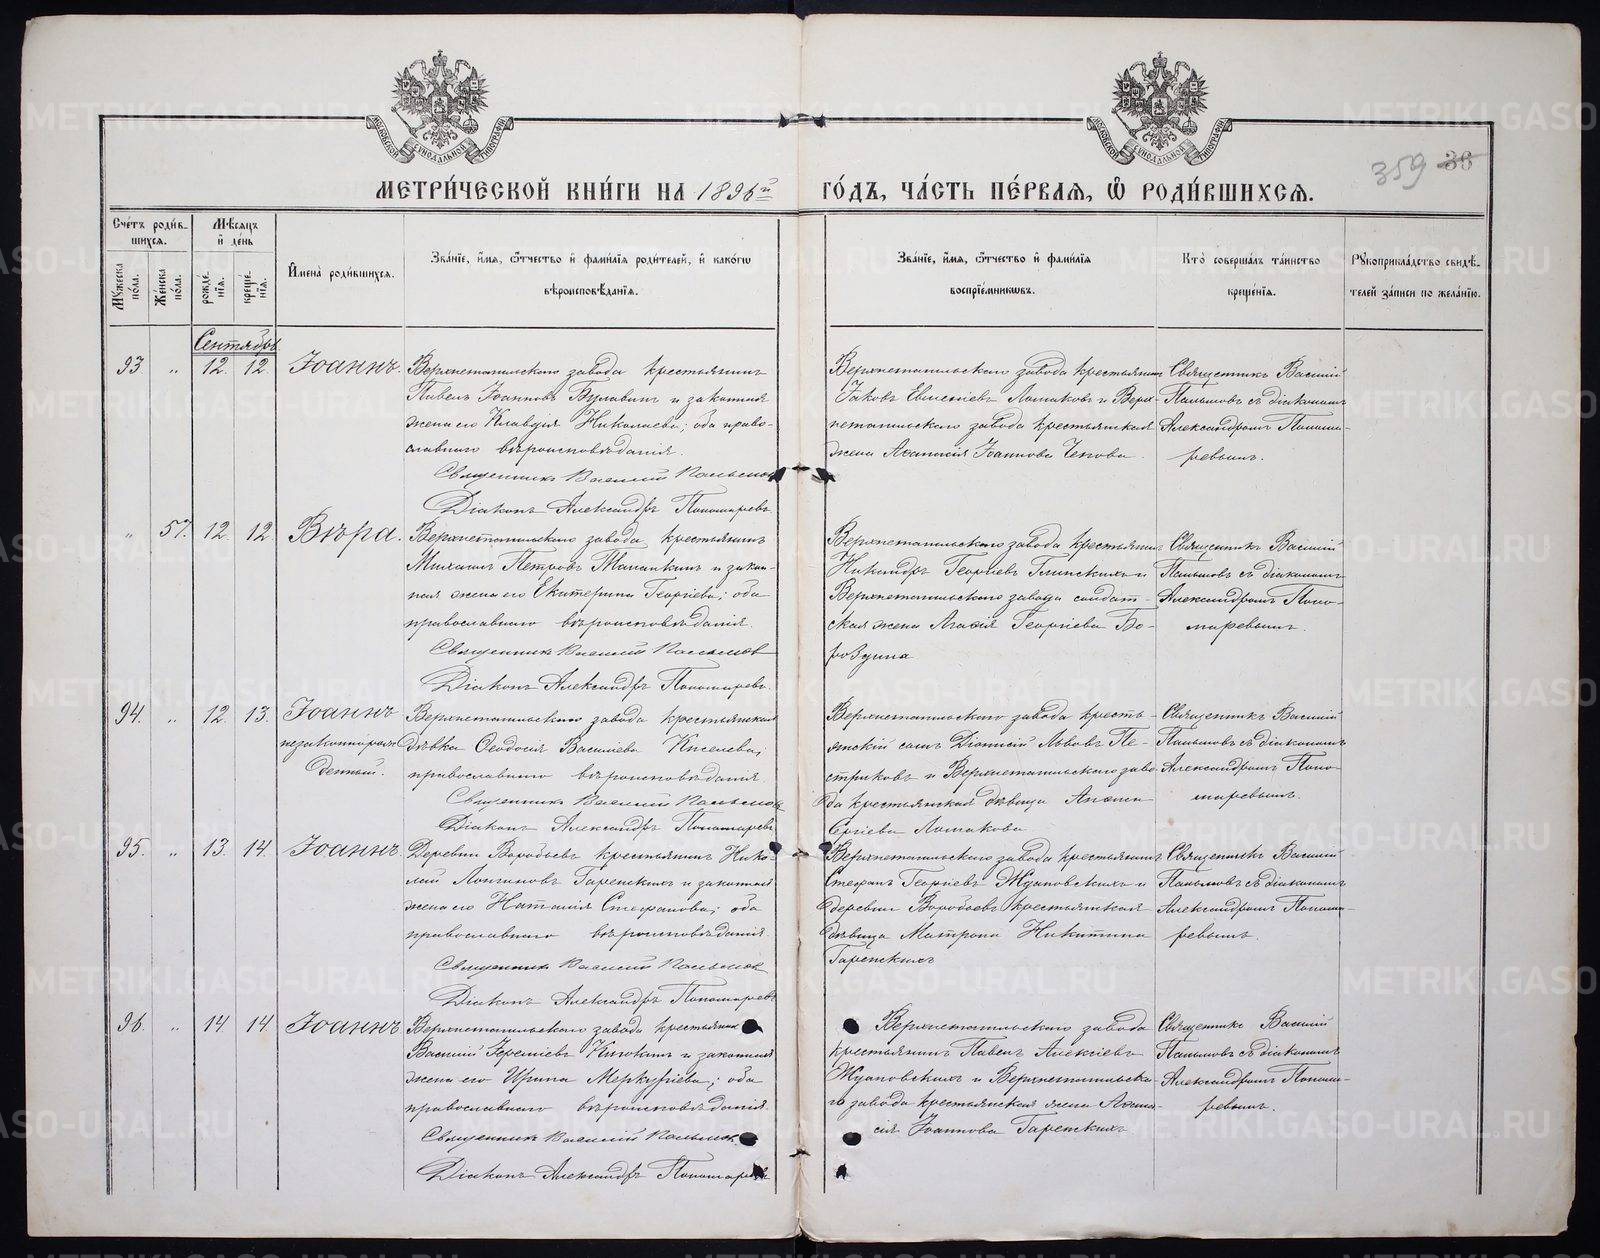 МОСКОВСКОЙ СѴНОДАЛЬНОЙ ТИПОГРАФІИ
МОСКОВСКОЙ СѴНОДАЛЬНОЙ ТИПОГРАФІИ
359 38
МЕТРИ́ЧЕСКОЙ КНИ́ГИ НА 1896й ГО́ДЪ, ЧА́СТЬ ПЕ́РВАЯ, Ѡ РОДИ́ВШИХСЯ.
Сче́тъ роди́в-
шихся.
Му́жеска по́ла.
Же́нска по́ла.
Мѣ́сяцъ и де́нь
рожде́нія.
креще́нія.
И́мена роди́вшихся.
Зва́ніе, и́мя, ѻ́тчество и фами́лія роди́телей, и како́гѡ
вѣроисповѣ́данія.
Зва́ніе, и́мя, ѻ́тчество и фами́лія
воспріе́мниковъ.
Кто̀ соверша́лъ та́инство
креще́нія.
Рꙋкоприкла́дство свидѣ́-
телей за́писи по жела́нію.
Сентябрь
93 " 12. 12. Іоаннъ.
Верхнетагильскаго завода крестьянинъ
Павелъ Іоанновъ Булавинъ и законная
жена его Клавдія Николаева; оба право-
славнаго вѣроисповѣданія.
Священникъ Василій Пальмовъ
Діаконъ Александръ Пономаревъ
Верхнетагильскаго завода крестьянинъ
Іаковъ Евгеніевъ Ломаковъ и Верх-
нетагильскаго завода крестьянская
жена Аѳанасія Іоаннова
Священникъ Василій
Пальмовъ съ діакономъ
Александромъ Понома-
ревымъ.
" 57. 12. 12. Вѣра.
Верхнетагильскаго завода крестьянинъ
Михаилъ Петровъ и закон-
ная жена его Екатерина Георгіева; оба
православнаго вѣроисповѣданія.
Священникъ Василій Пальмовъ
Діаконъ Александръ Пономаревъ.
Верхнетагильскаго завода крестьянинъ
Никандръ Георгіевъ Глинскихъ и
Верхнетагильскаго завода солдат-
ская жена Агаѳія Георгіева Бо-
роздина
Священникъ Василій
Пальмовъ съ діакономъ
Александромъ Поно-
маревымъ.
94. " 12. 13. Іоаннъ
незаконнорож-
денный.
Верхнетагильскаго завода крестьянская
дѣвка Ѳеодосія Васильева Киселева,
православнаго вѣроисповѣданія
Священникъ Василій Пальмовъ
Діаконъ Александръ Пономаревъ
Верхнетагильскаго завода кресть-
янскій сынъ Діонисій Львовъ Пе-
стриковъ и Верхнетагильскаго заво-
да крестьянская дѣвица
Сергіева Ломакова
Священникъ Василій
Пальмовъ съ діакономъ
Александромъ Поно-
маревымъ.
95. " 13. 14. Іоаннъ.
Деревни Воробьевъ крестьянинъ Нико-
лай Лонгиновъ Гаренскихъ и законная
жена его Наталія Стефанова; оба
православнаго вѣроисповѣданія.
Священникъ Василій Пальмовъ
Діаконъ Александръ Пономаревъ
Верхнетагильскаго завода крестьянинъ
Стефанъ Георгіевъ Жуановскихъ и
деревни Воробьевъ крестьянская
дѣвица Матрона Никитина
Гаренскихъ
Священникъ Василій
Пальмовъ съ діакономъ
Александромъ Понома-
ревымъ.
96. " 14. 14. Іоаннъ
Верхнетагильскаго завода крестьянинъ
Василій Іереміевъ и законная
жена его Ирина Меркуріева; оба
православнаго вѣроисповѣданія.
Священникъ Василій Пальмовъ
Діаконъ Александръ Пономаревъ
Верхнетагильскаго завода
крестьянинъ Павелъ Алексіевъ
Жуановскихъ и Верхнетагильска-
го завода крестьянская жена Аѳана-
сія Іоаннова Гаренскихъ
Священникъ Василій
Пальмовъ съ діакономъ
Александромъ Понома-
ревымъ.
METRIKI.GASO-URAL.RU